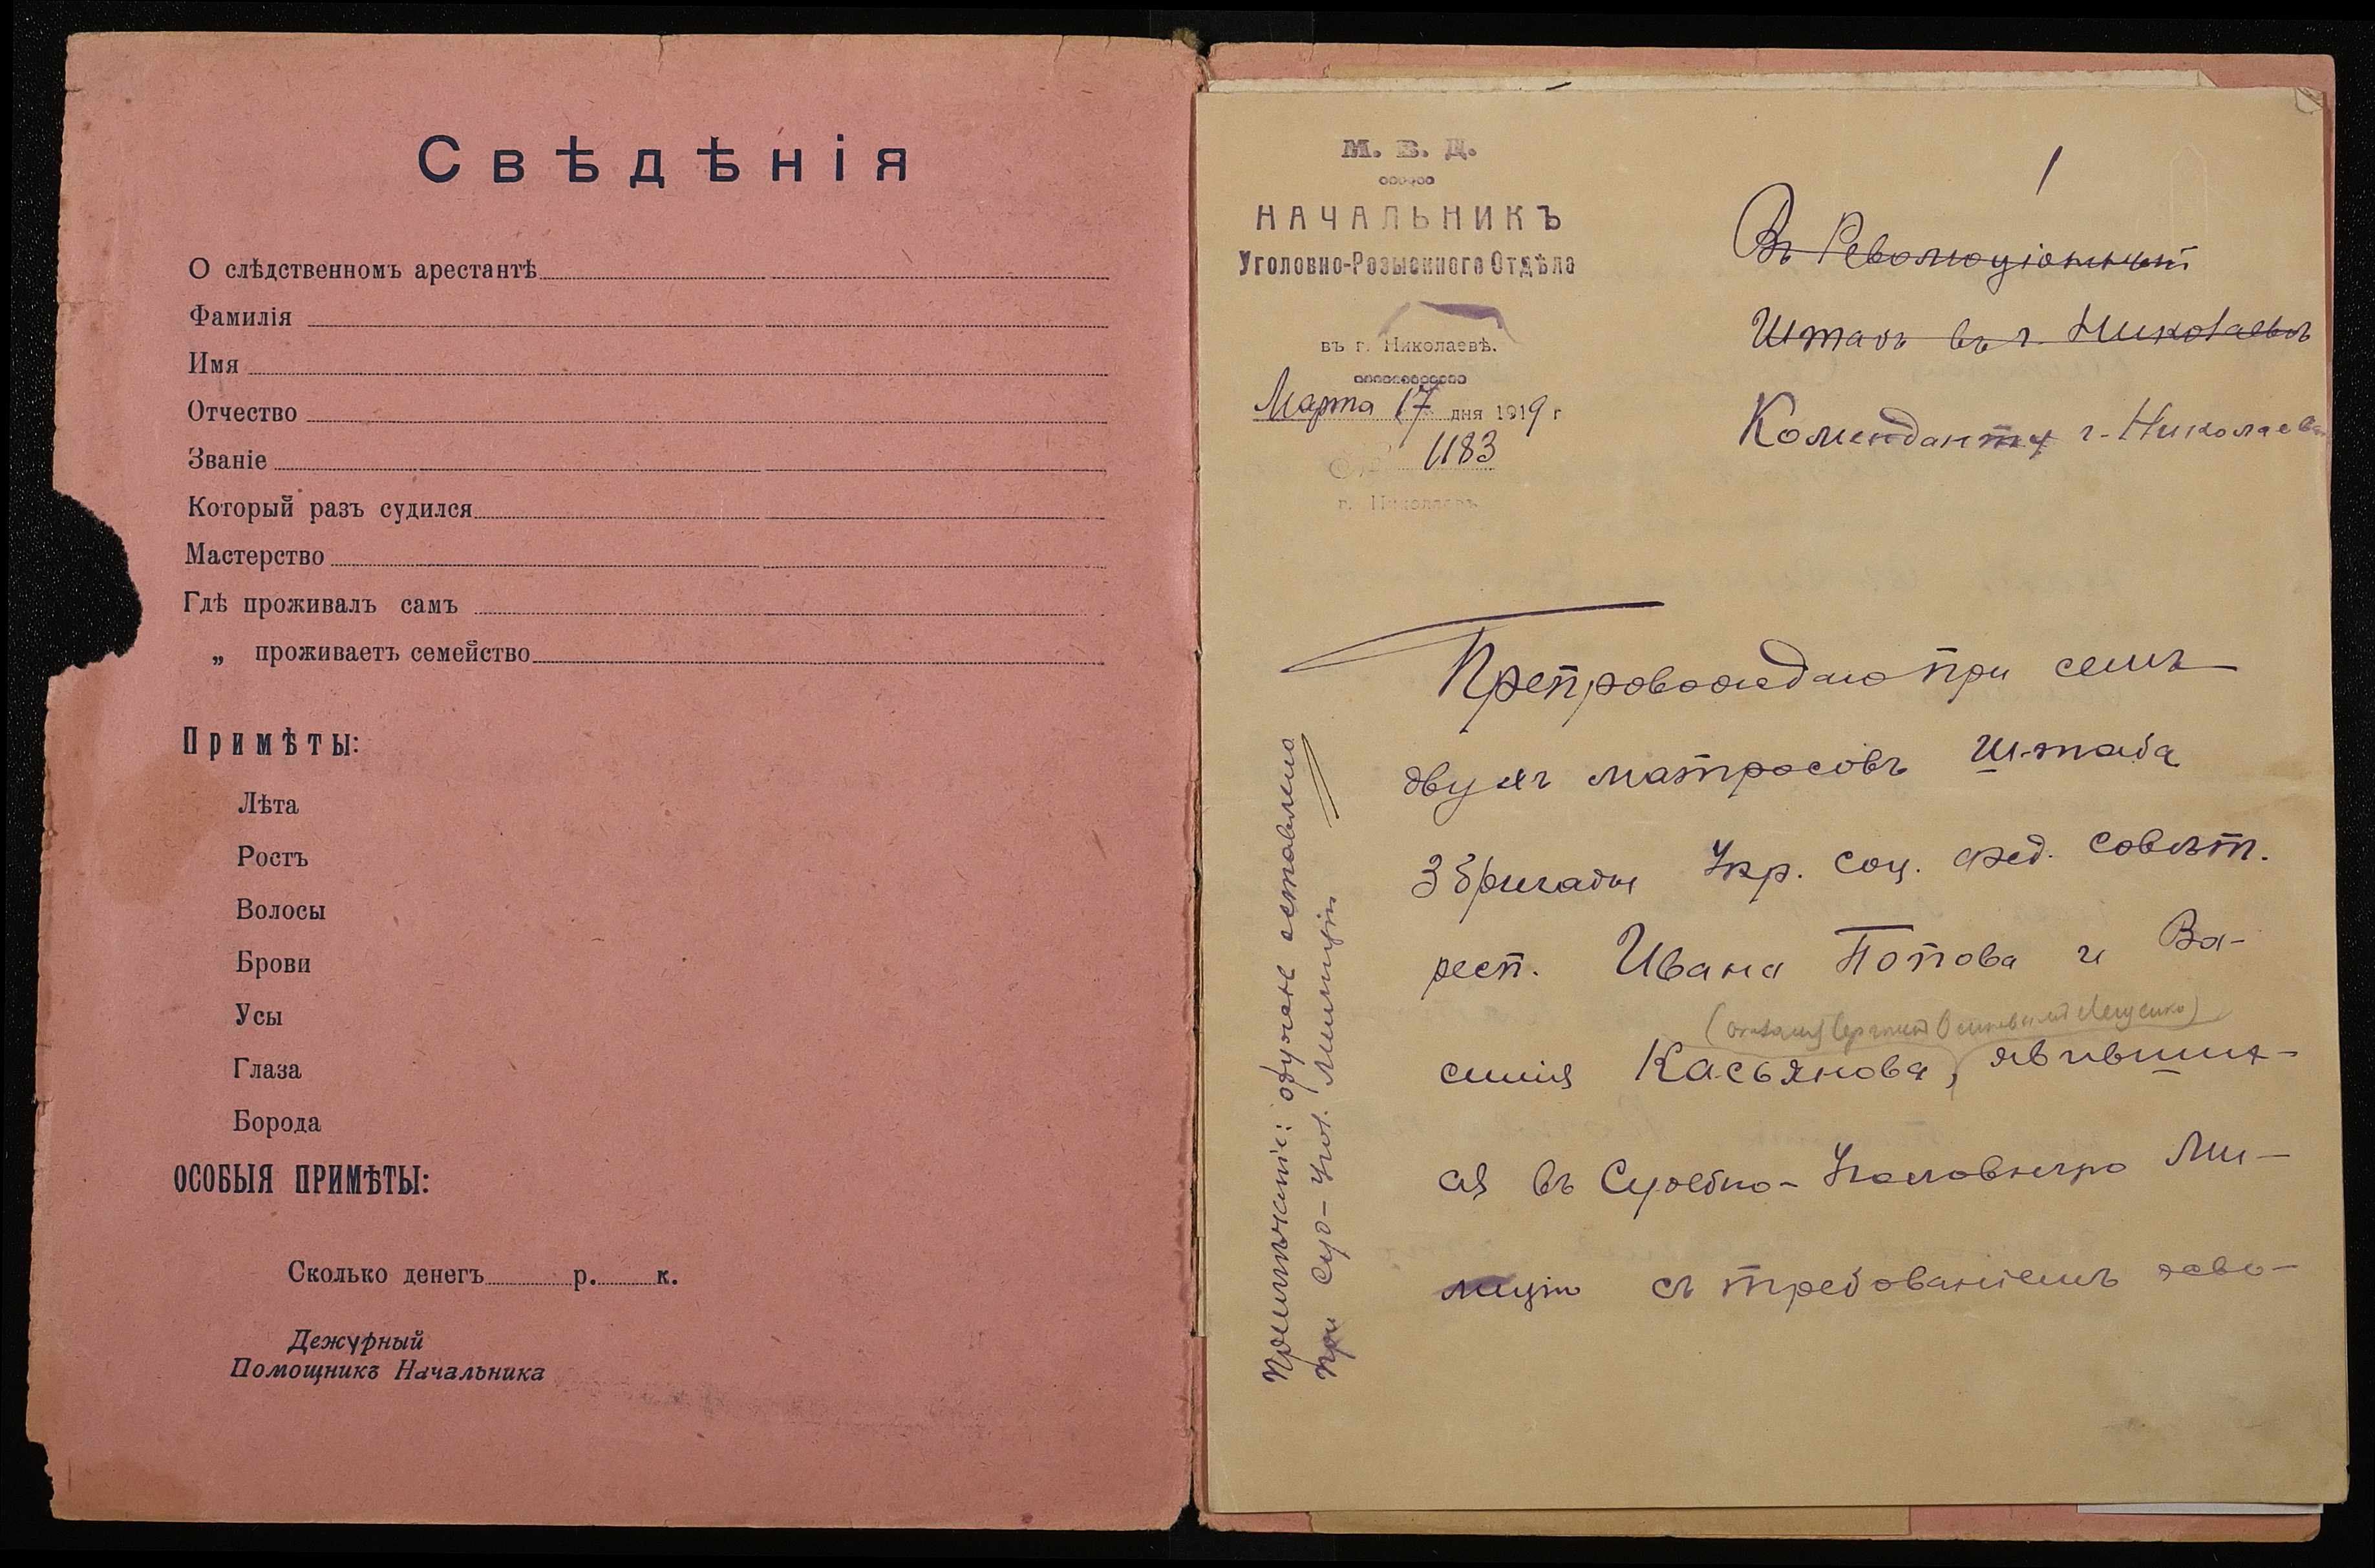 Свѣдѣнія
О слѣдственномъ арестантѣ
Фамилія
Имя
Отчество
Званіе
Который разъ судился
Мастерство
Гдѣ проживалъ самъ
„ проживаетъ семейство
Примѣты:
Лѣта
Ростъ
Волосы
Брови
Усы
Глаза
Борода
ОСОБЫЯ ПРИМѢТЫ:
Сколько денегъ р. к.
Дежурный
Помощникъ Начальника
М. В. Д.
НАЧАЛЬНИКЪ
Уголовно-Розыскного Отдѣла
въ г. Николаевѣ.
Марта 17 дня 1919 г
1183
г. Николаевъ
1
Въ Революціонный
Штабъ въ г. Николаевѣ
Коменданту г. Николаева
Препровождаю при семъ
двухъ матросовъ Штаба
3 бригады Укр. соц. фед. совѣт.
респ. Ивана Попова и Ва-
силія Касьянова, явивших-
ся въ Судебно-Уголовную Ми-
лицію съ требованіемъ
Примѣчаніе: оружіе оставлено
при Суд-Угол. Милиціи